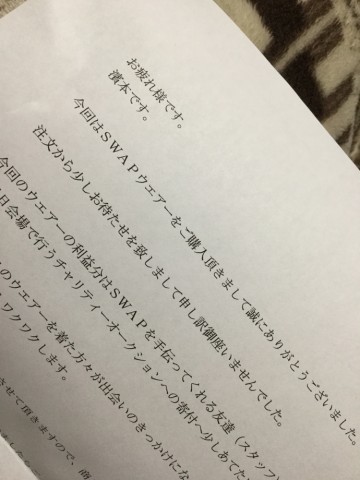 お疲れ様です。
濱本です。
今回はＳＷＡＰウエアーをご購入頂きまして誠にありがとうございました。
注文から少しお待たせを致しまして申し訳御座いませんでした。
今回のウエアーの利益分はＳＷＡＰを手伝ってくれる友達（スタッフ）
日会場で行うチャリティーオークションへの寄付へ少しあてた
のウエアーを着た方々が出会いのきっかけにな
ワクワクします。
させて頂きますので、